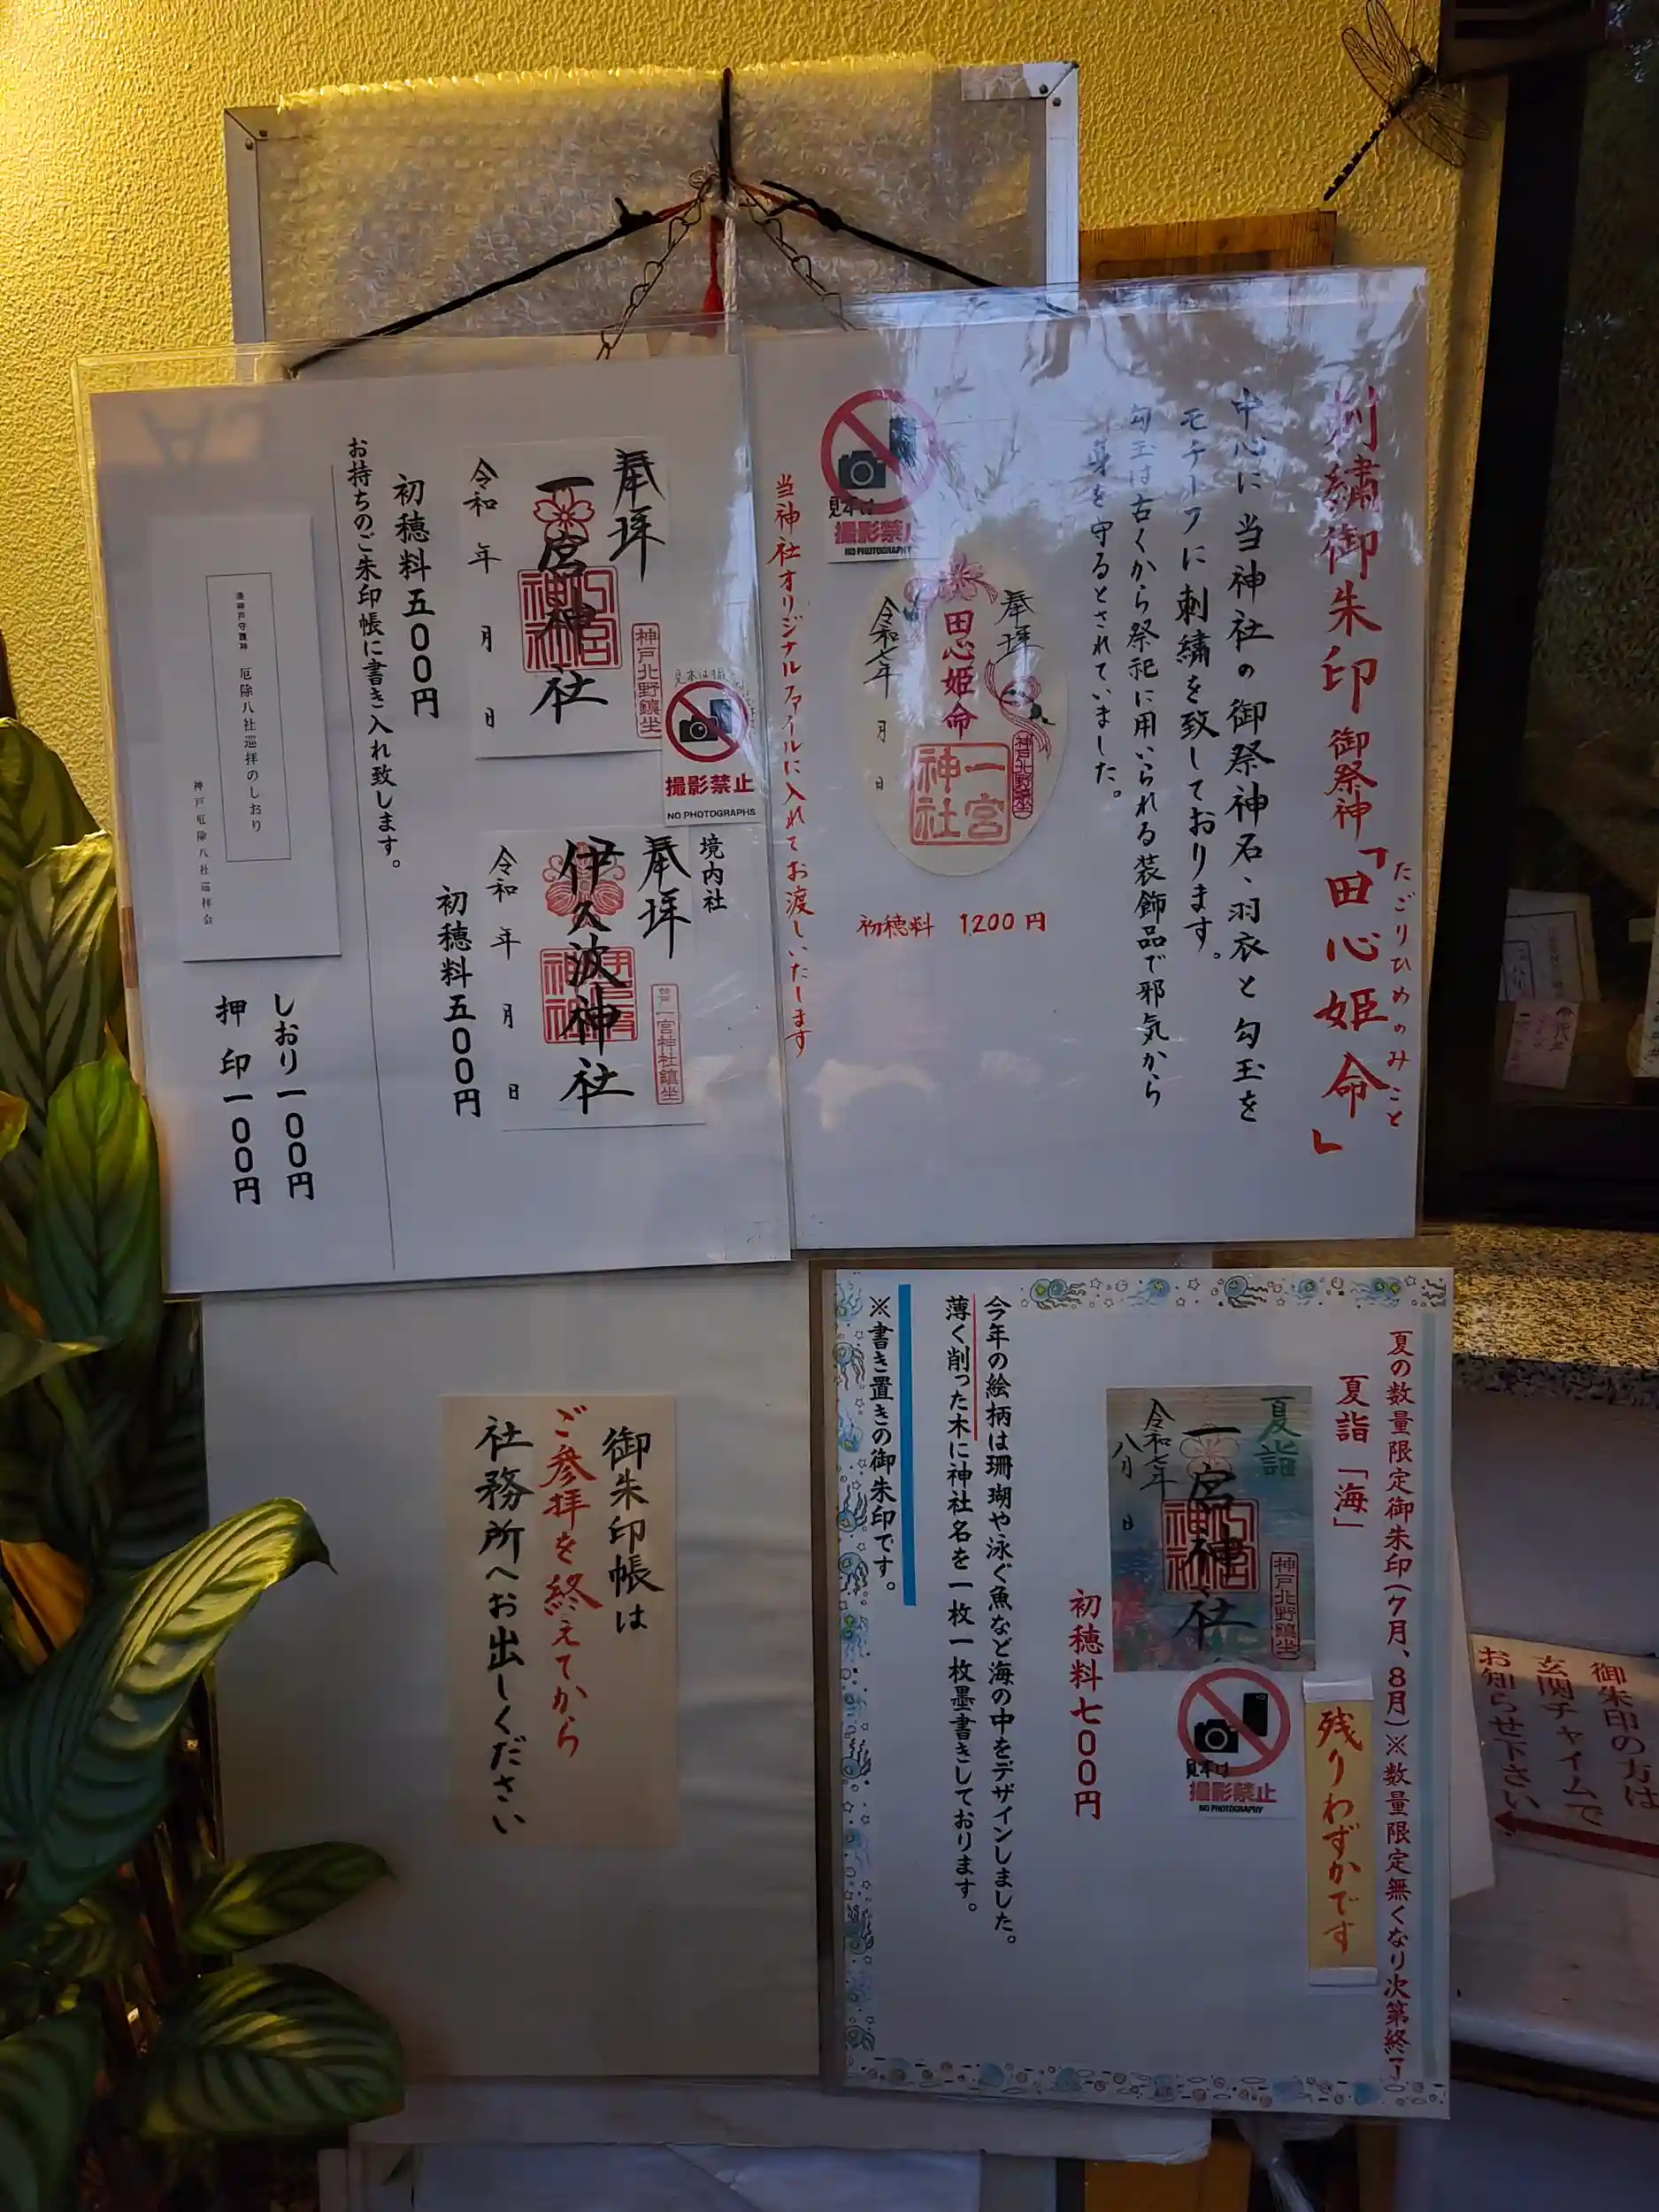 刺繍御朱印 御祭神「田心姫命」
たごりひめのみこと
中心に当神社の御祭神名、羽衣と勾玉を
モチーフに刺繍を致しております。
勾玉は古くから祭祀に用いられる装飾品で邪気から
身を守るとされていました。
奉拝
田心姫命
一宮神社
神戸北野鎮坐
令和七年 月 日
初穂料 1200円
見本は
撮影禁止
NO PHOTOGRAPHY
当神社オリジナルファイルに入れてお渡しいたします
奉拝
一宮神社
神戸北野鎮坐
令和 年 月 日
初穂料五〇〇円
見本は
撮影禁止
NO PHOTOGRAPHS
境内社
奉拝
伊久波神社
一宮神社鎮坐
令和 年 月 日
初穂料五〇〇円
お持ちのご朱印帳に書き入れ致します。
厄除八社巡拝のしおり
神戸厄除八社巡拝会
しおり一〇〇円
押印一〇〇円
夏の数量限定御朱印(7月、8月)※数量限定無くなり次第終了
夏詣「海」
残りわずかです
夏詣
一宮神社
神戸北野鎮坐
令和七年
八月 日
見本は
撮影禁止
NO PHOTOGRAPHY
初穂料七〇〇円
今年の絵柄は珊瑚や泳ぐ魚など海の中をデザインしました。
薄く削った木に神社名を一枚一枚墨書きしております。
※書き置きの御朱印です。
御朱印帳は
ご参拝を終えてから
社務所へお出しください
御朱印の方は
玄関チャイムで
お知らせ下さい